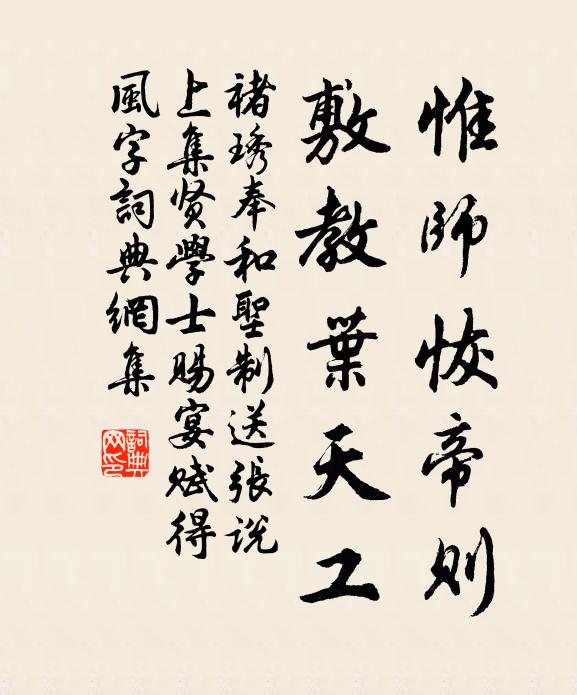 惟師恢帝則
敷教葉天工
褚琇奉和聖制送張說
上集贤學士賜宴赋得
風字詞典網集
詞典
网印